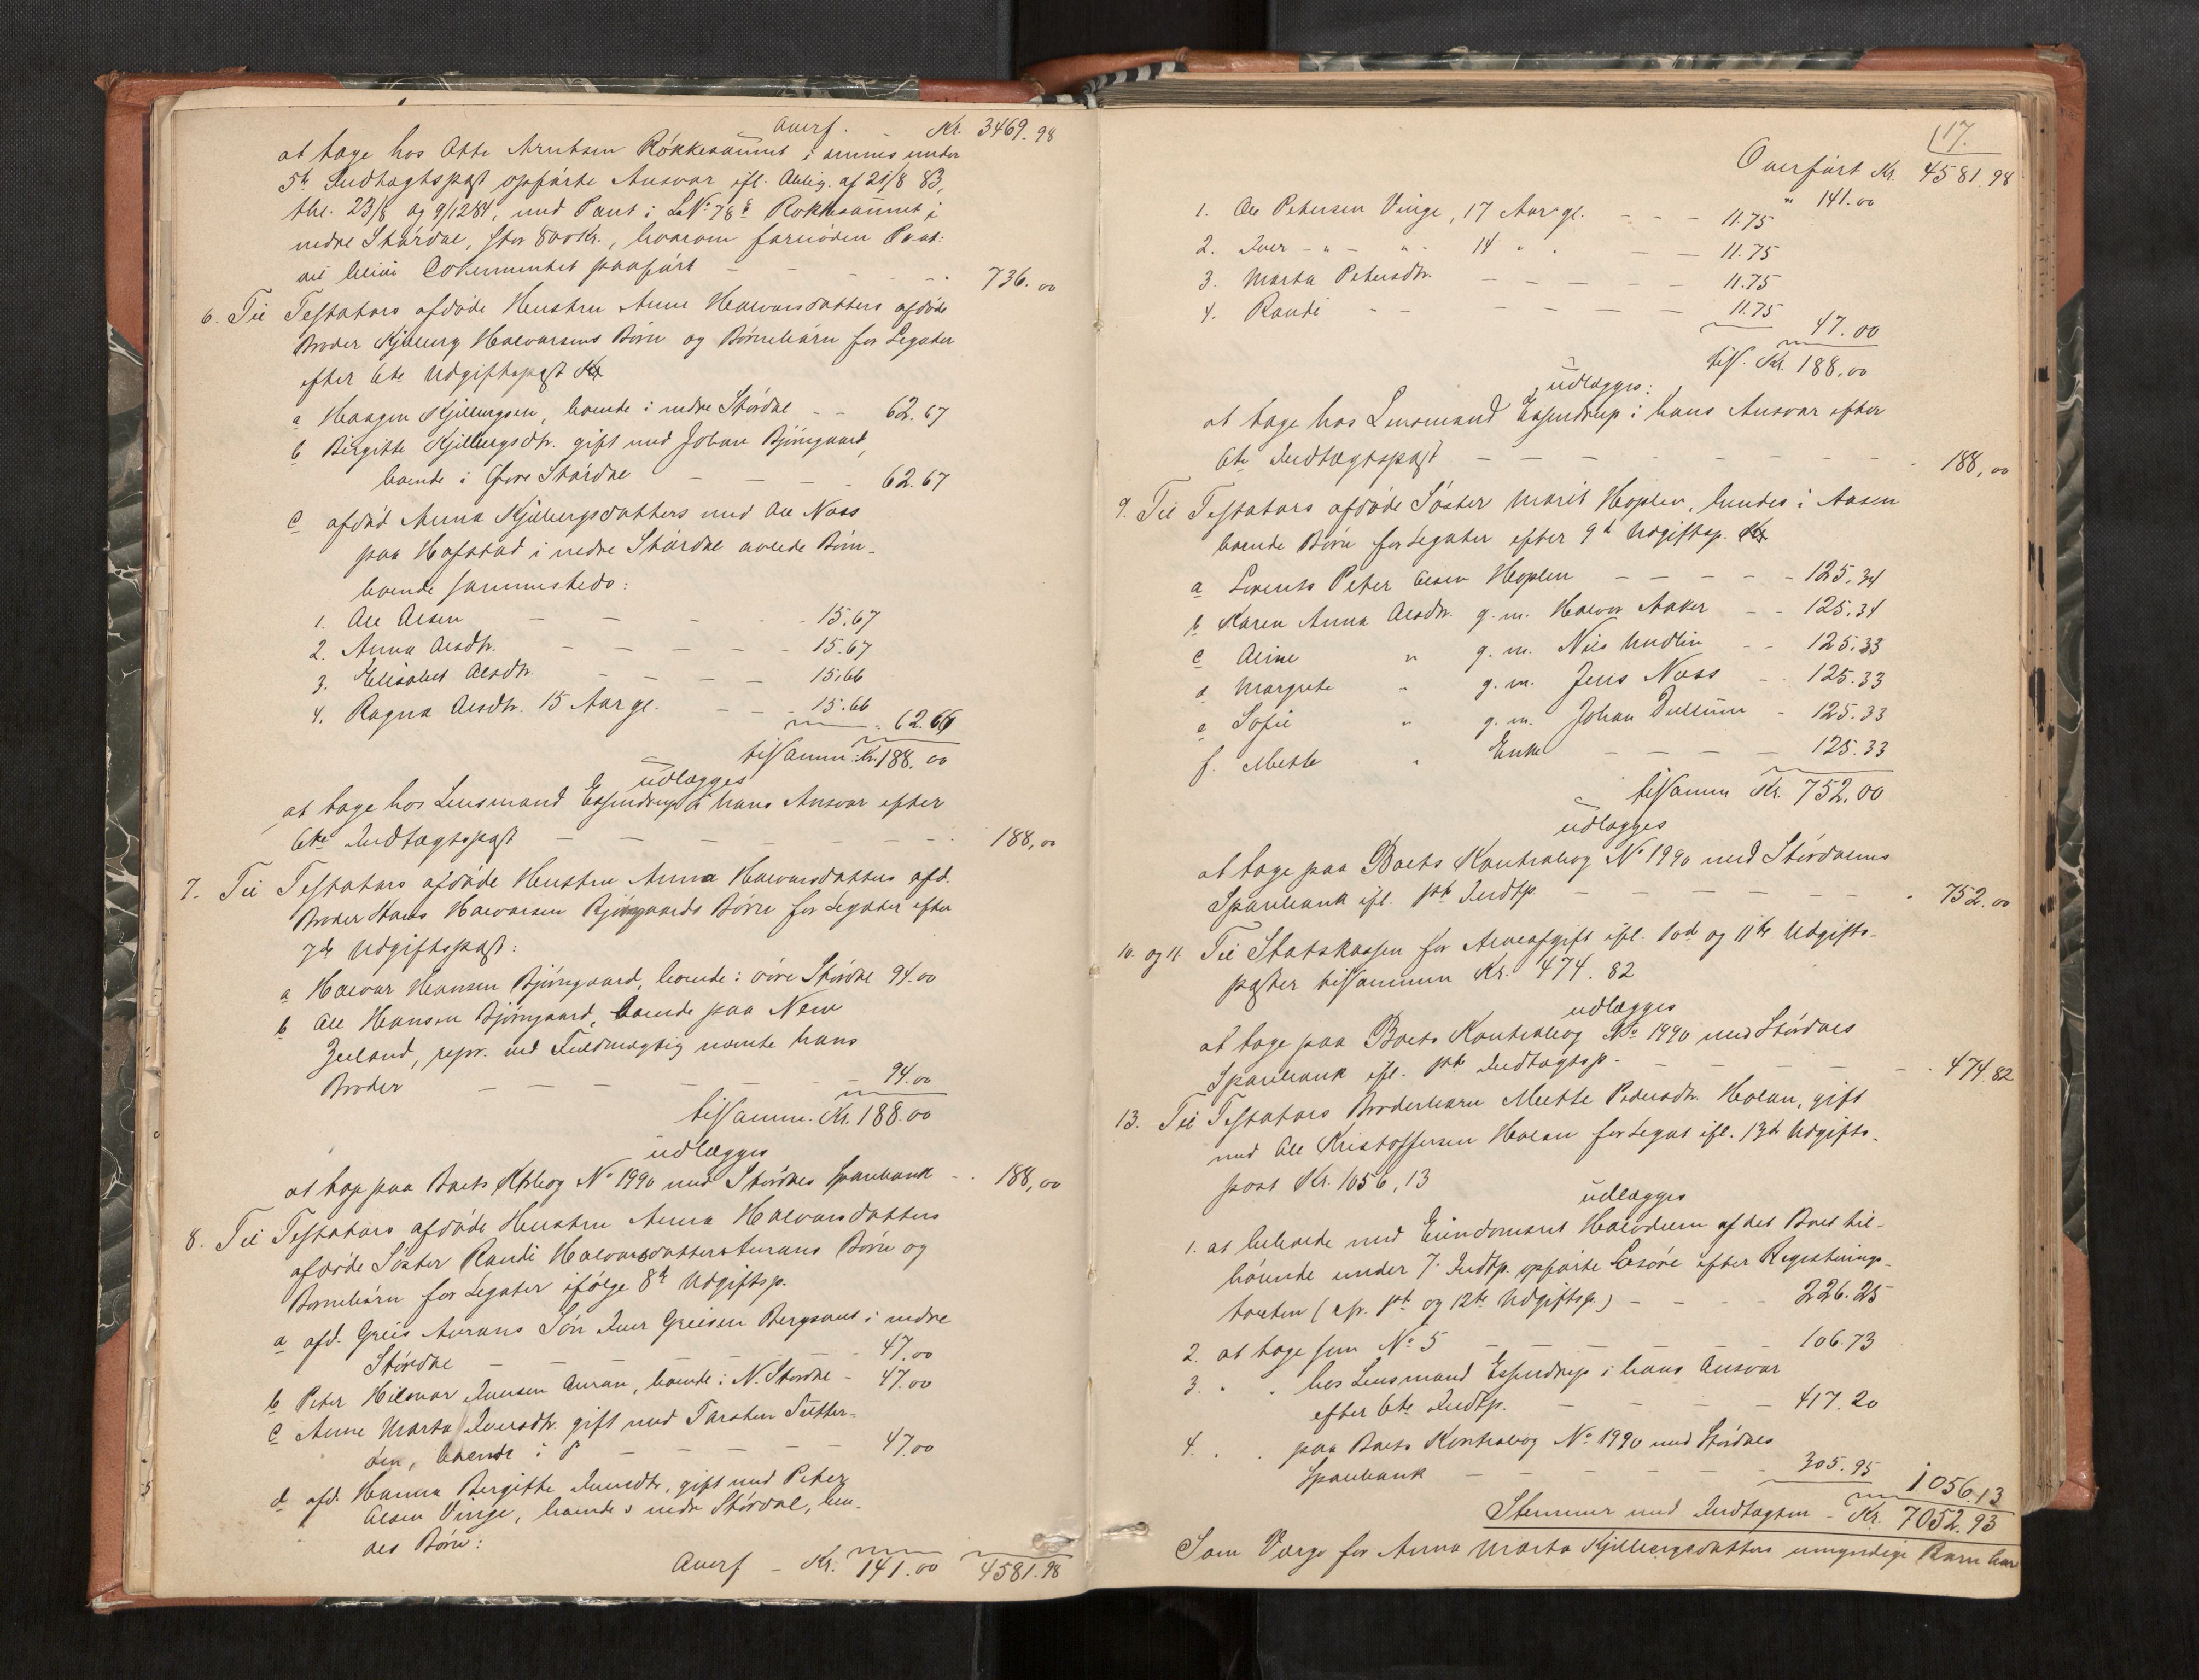 Overf. - Kr. 3469.98
at tage hos Otte Arntsen Røkkesaunet i ammes under
5te Indtægtspost opførte Ansvar ifl. Oblig. af 21/8 83,
thl. 23/8 og 9/12 84, med Pant i LNo 78c Røkkesaunet i
nedre Størdal, stor 800 Kr., hvorom fornøden Paat:
vil blive Dokumentet paaført - - - - - 736.00
6. Til Testators afdøde Hustru Anne Halvarsdatters afdøde
Broder Kjelberg Halvarsens Børn og Børnebørn for Legater
efter 6te Udgiftspost
a Haagen Kjelbergsen, boende i nedre Størdal - - 62.67
b Birgitte Kjelbergsdtr. gift med Johan Bjørngaard,
boende i Øvre Størdal - - - - 62.67
c afdød Anna Kjelbergsdatters med Ole Noss
paa Hofstad i nedre Størdal avlede Børn
boende sammesteds:
1. Ole Olsen - - - - 15.67
2. Anna Olsdtr. - - - - - 15.67
3. Elisabet Olsdtr. - - - - 15.66
4. Ragna Olsdtr. 15 Aar gl. - - - 15.66
62.66
tilsamm. Kr. 188.00
udlægges
at tage hos Lensmand Essendrup i hans Ansvar efter
6te Indtægtspost - - - - - - - 188,00
7. Til Testators afdøde Hustru Anna Halvarsdatters afd.
Broder Hans Halvarsen Bjørngaards Børn for Legater efter
7de Udgiftspost:
a Halvar Hansen Bjørngaard, boende i øvre Størdal 94.00
b Ole Hansen Bjørngaard, boende paa New
Zeeland, repr. ved Fuldmægtig nævnte hans
Broder - - - - - - - 94.00
tilsamm. Kr. 188.00
udlægges
at tage paa Boets Ktrbog No 1990 med Størdalens Sparebank - - 188,00
8. Til Testators afdøde Hustru Anna Halvarsdatters
afdøde Søster Randi Halvarsdatter Aurans Børn og
Børnebørn for Legater ifølge 8de Udgiftsp.
a afd. Greis Aurans Søn Iver Greisen Bergsaus i nedre
Størdal - - - - - - 47.00
b Peter Hilmar Iversen Auran, boende i N. Størdal - 47.00
c Anne Marta Iversdtr. gift med Torsten Sætter-
øen, boende i - - - - - 47.00
d afd. Hanna Bergitte Iversdtr., gift med Peter
Olsen Vinge, boende i nedre Størdal, hen-
des Børn:
Overf - Kr. 141.00 4581.98
17.
Overført Kr. 4581.98
" 141.00
1. Ole Petersen Vinge, 17 Aar gl. - - - 11.75
2. Iver - " - " - 14 " " - - 11.75
3. Marta Petersdtr. - - - - - 11.75
4. Randi - - - - - - 11.75
47.00
tils. Kr. 188.00
udlægges:
at tage hos Lensmand Essendrup i hans Ansvar efter
6te Indtægtspost - - - - - - - - 188,00
9. Til Testators afdøde Søster Marit Hoplen, hendes i Aasen
boende Børn for Legater efter 9de Udgiftsp.
a Lorents Peter Olsen Hoplen - - - - - 125,34
b Karen Anna Olsdtr. g. m. Halvor Aaker - - 125,34
c Oline " g. m. Nils Undlin - - 125,33
d Margrete " g. m. Jens Noss - - 125.33
e Sofie " g. m. Johan Dullum - 125.33
f. Mette " Enke - - - - 125.33
tilsamm Kr. 752.00
udlægges
at tage paa Boets Kontrabog No 1990 med Størdalens
Sparebank ifl. 1ste Indtp. - - - - - - - 752.00
10. og 11. Til Statskassen for Arveafgift ifl. 10de og 11te Udgifts-
poster tilsammen Kr. 474.82
udlægges
at tage paa Boets Kontrabog No 1990 med Størdals
Sparebank ifl. 1ste Indtægtsp. - - - - - - 474.82
13. Til Testators Broderbarn Mette Pedersdtr. Holan, gift
med Ole Kristoffersen Holan for Legat ifl. 13de Udgifts-
post Kr. 1056,13
udlægges
1. at beholde med Eiendomsret Halvdelen af det Boet til-
hørende under 7. Indtp. opførte Løsøre efter Registrerings-
taxten (cfr. 1ste og 12te Udgiftsp.) - - - - 226.25
2. at tage som No 5 - - - - - 106.73
3. " " hos Lensmand Essendrup i hans Ansvar
efter 6te Indtp. - - - - - 417.20
4. " " paa Boets Kontrabog No 1990 med Størdals
Sparebank - - - - - - 305.95 1056.13
Stemmer med Indtægten - Kr. 7052.93
Som Værge for Anna Marta Kjelbergsdatters umyndige Børn har